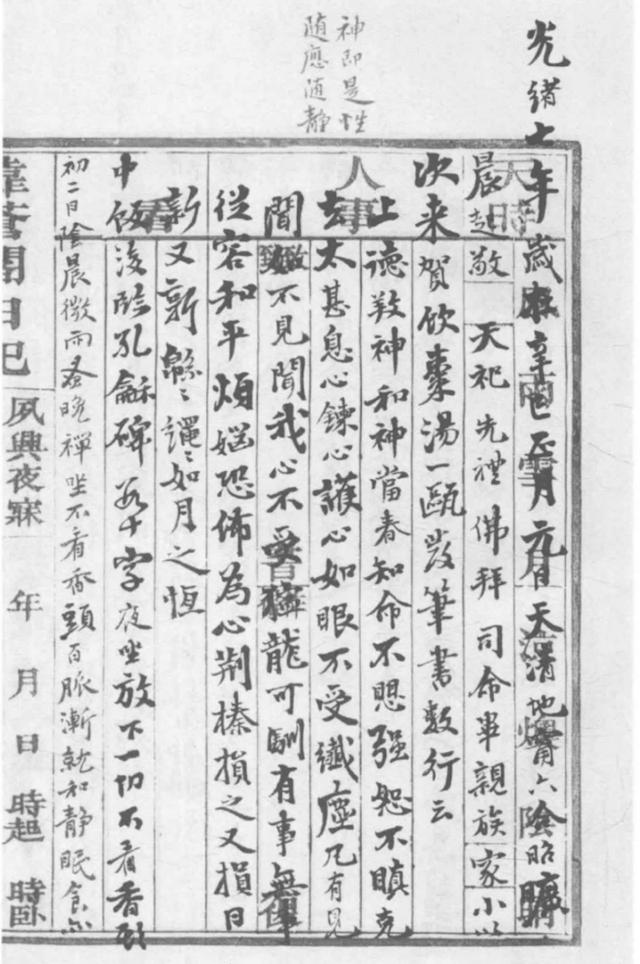 神即是性
随應随静
光緒七年歲在辛巳正月元日天清地甯六陰昭曠
晨起敬天祀先禮佛拜司命畢親族家小以
次来賀飲棗湯一甌發筆書数行云
上德敦神和神當春知命不愳强恕不瞋克
去太甚息心鍊心護心如眼不受纖塵凡有見
聞如不見聞我心不受獰龍可馴有事無事
從容和平煩惱恐佈為心荆榛損之又損日
新又新緜緜繩繩如月之恆
中飯後臨孔龢碑若干字夜坐放下一切不看香
初二日陰晨微雨蚤晚禪坐不看香頭百脈漸就和静眠食
日記
夙興夜寐 年 月 日 時起 時卧
天時
人事